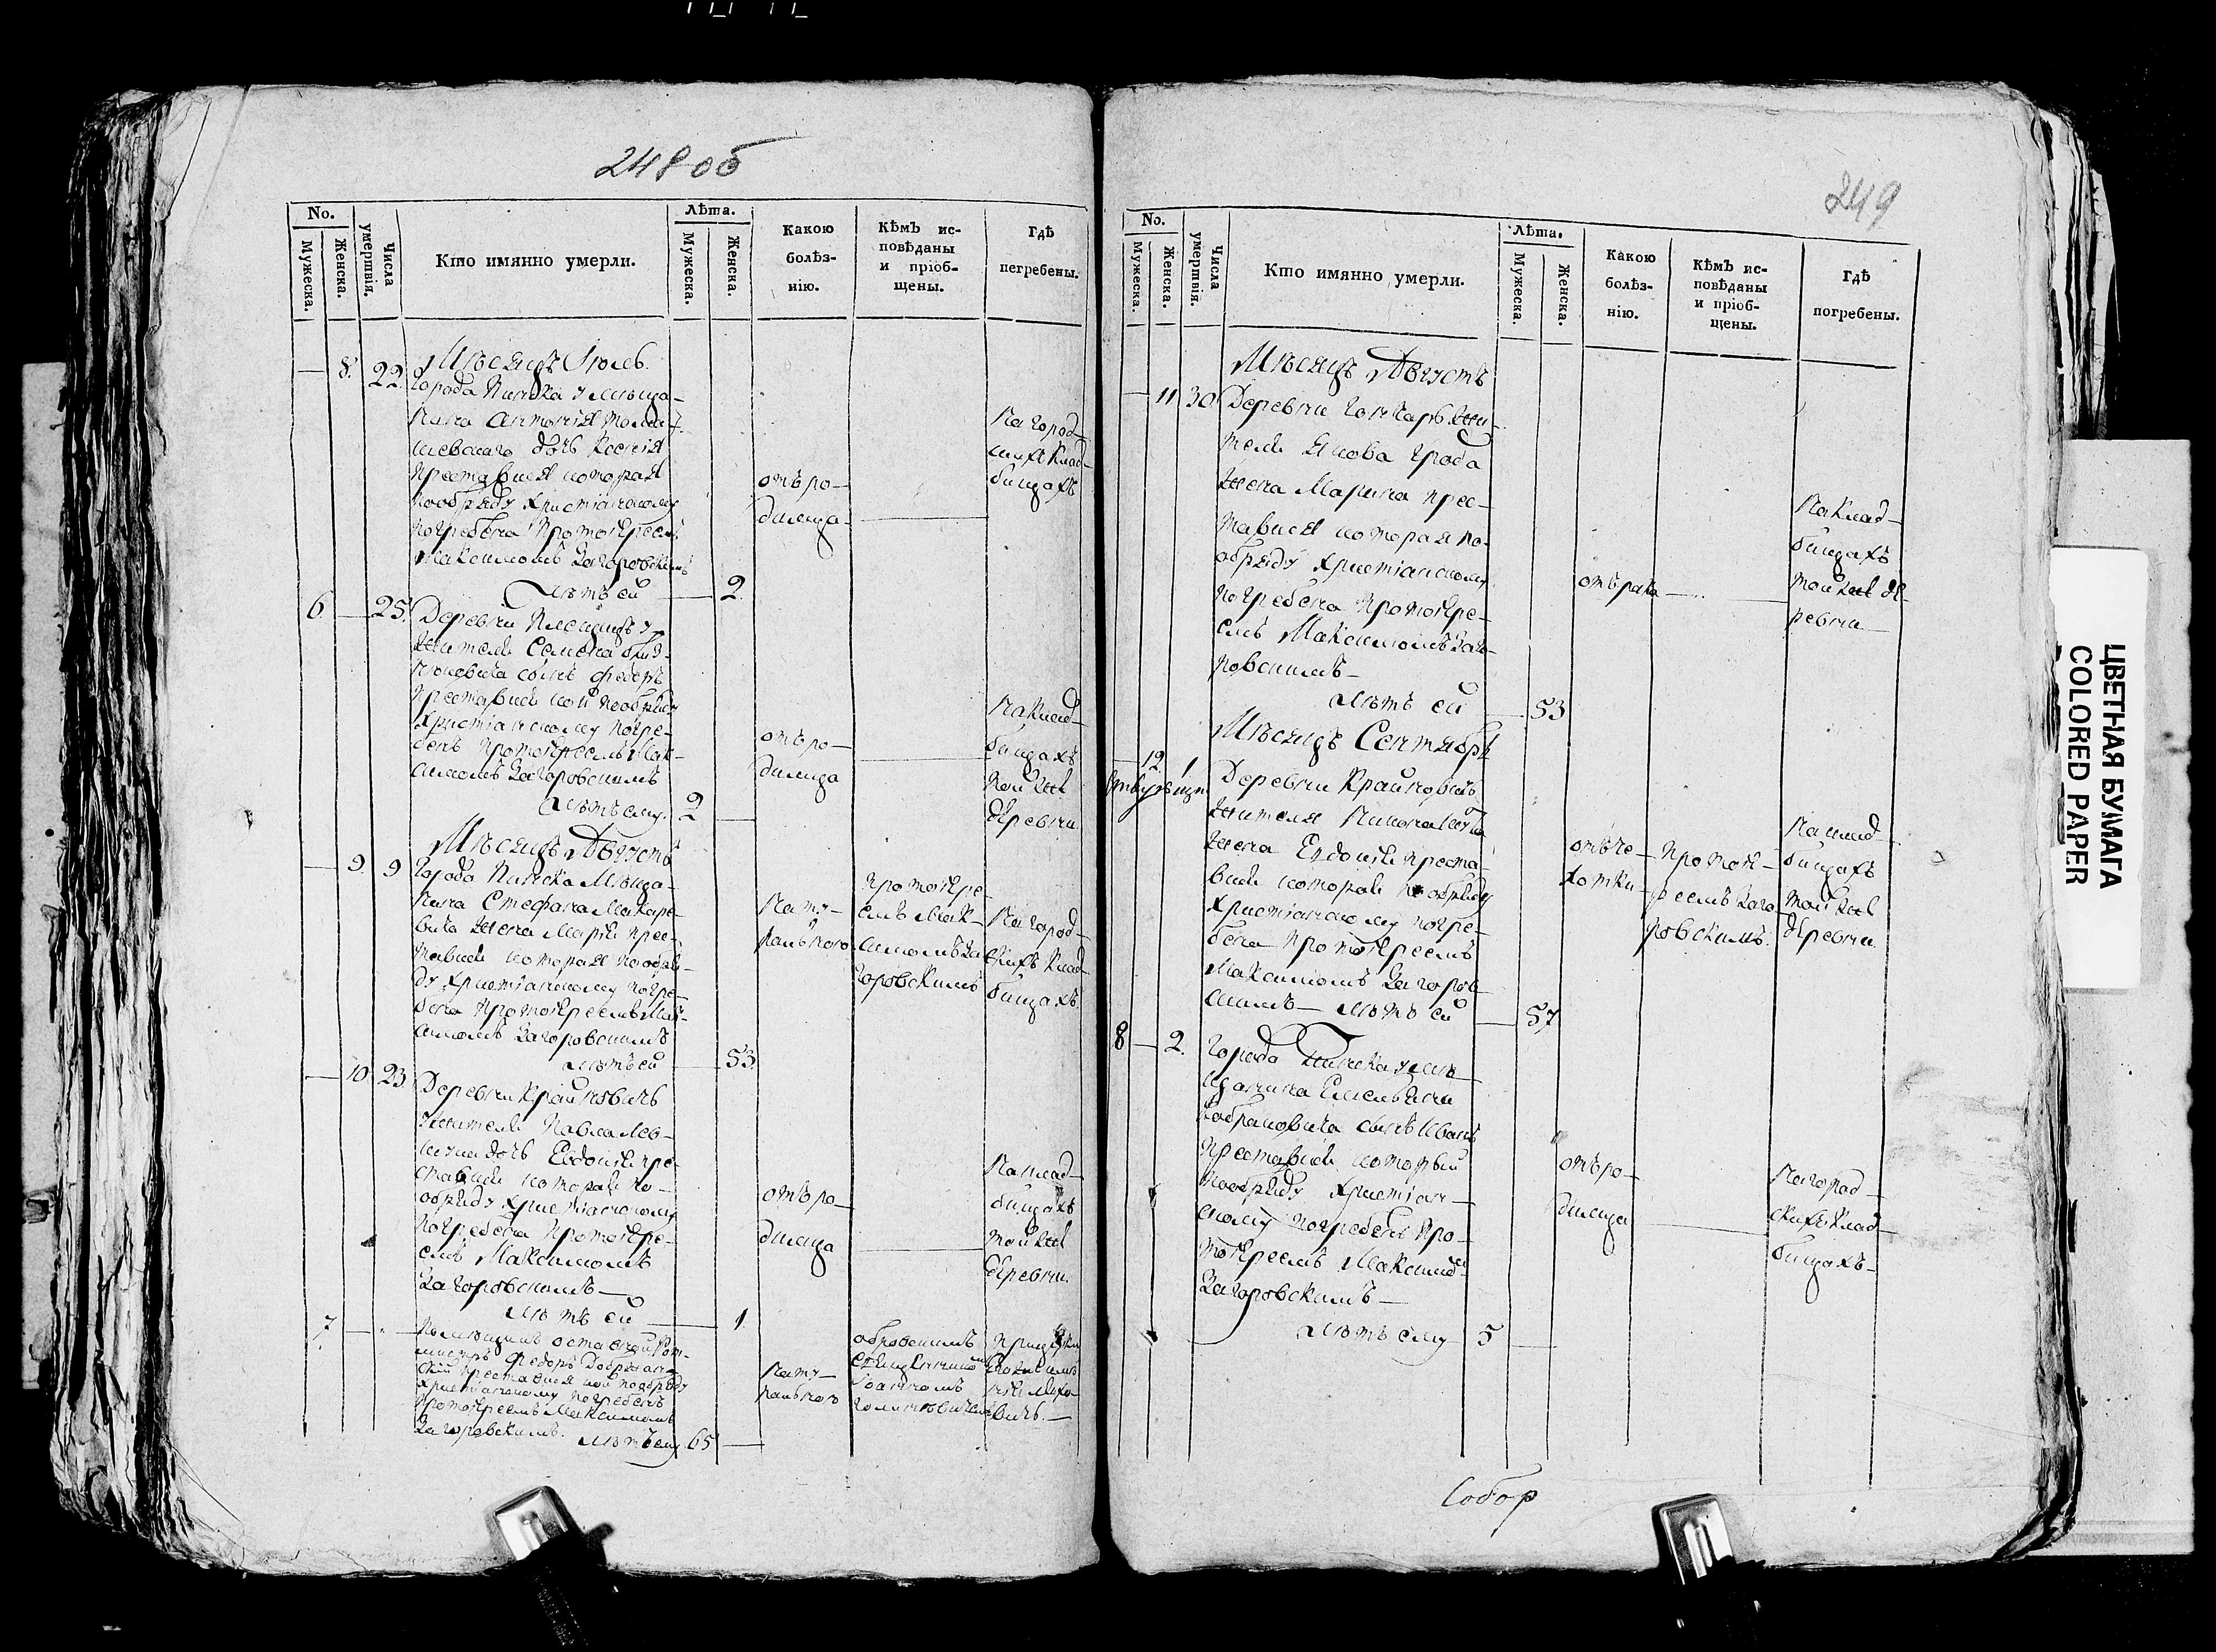 248 об
No.
Мужеска.
Женска.
Числа умертвія.
Кто имянно умерли.
Лѣта.
Мужеска.
Женска.
Какою
болѣз-
нію.
Кѣмъ ис-
повѣданы
и пріоб-
щены.
Гдѣ
погребены.
8. 22.
Мѣсяцъ Іюль.
города Пинска у мѣща-
нина Антонія
дочь Ксенія
преставися которая
пообряду христіанскому
погребена протоіереемъ
Максимомъ Загоровскимъ
лѣтъ ей 2.
отъ ро-
димца
На город-
скихъ клад-
бищахъ
6 25.
Деревни у
жителя Семена
сынъ Федоръ
преставися кой пообряду
христіанскому погре-
бенъ протоіереемъ Мак-
симомъ Загоровскимъ
лѣтъ ему. 2
отъ ро-
димца
На клад-
бищахъ
той же
деревни
Мѣсяцъ Августъ
9. 9
города Пинска мѣща-
нина Стефана Макаре-
вича жена Марія прес-
тавися которая пообря-
ду христіанскому погре-
бена протоіереемъ Мак-
симомъ Загоровскимъ
лѣтъ ей 53.
Нату-
рально
протоіере-
емъ Мак-
симомъ За-
горовскимъ
На город-
скихъ клад-
бищахъ
10 23.
Деревни Крайновичъ
жителя Павла Лев-
дочь Евдокія пре-
ставися которая по-
обряду христіанскому
погребена протоіере-
емъ Максимомъ
Загоровскимъ
лѣтъ ей 1.
отъ ро-
димца
На клад-
бищахъ
той же
деревни.
7
Помѣщикъ оставной рот-
мистръ Федоръ
преставися кой пообряду
христіанскому погребенъ
протоіереемъ Максимомъ
Загоровскимъ.
лѣтъ ему 65
Нату-
рально
священникомъ
Іоанномъ
при церкви
249
No.
Мужеска.
Женска.
Числа умертвія.
Кто имянно умерли.
Лѣта.
Мужеска.
Женска.
Какою
болѣз-
нію.
Кѣмъ ис-
повѣданы
и пріоб-
щены.
Гдѣ
погребены.
Мѣсяцъ Августъ
11 30
Деревни Гончаръ жи-
теля Якова Грода
жена Марина прес-
тавися которая по-
обряду христіанскому
погребена протоіере-
емъ Максимомъ Заго-
ровскимъ
лѣтъ ей 53
отъ рака
На клад-
бищахъ
той же де-
ревни
Мѣсяцъ Сентябрь
12. 1
Деревни Крайновичъ
жителя
жена Евдокія преста-
вися которая по обряду
христіанскому погре-
бена протоіереемъ
Максимомъ Загоров-
скимъ лѣтъ ей 57
отъ че-
хотки
протоіе-
реемъ Заго-
ровскимъ.
На клад-
бищахъ
той же
деревни.
8 2.
города Пинска у мѣ-
щанина Емельяна
сынъ Иванъ
преставися который
пообряду христіан-
скому погребенъ про-
тоіереемъ Максимомъ
Загоровскимъ
лѣтъ ему 5
отъ ро-
димца
На город-
скихъ клад-
бищахъ
Собор
ЦВЕТНАЯ БУМАГА
COLORED PAPER